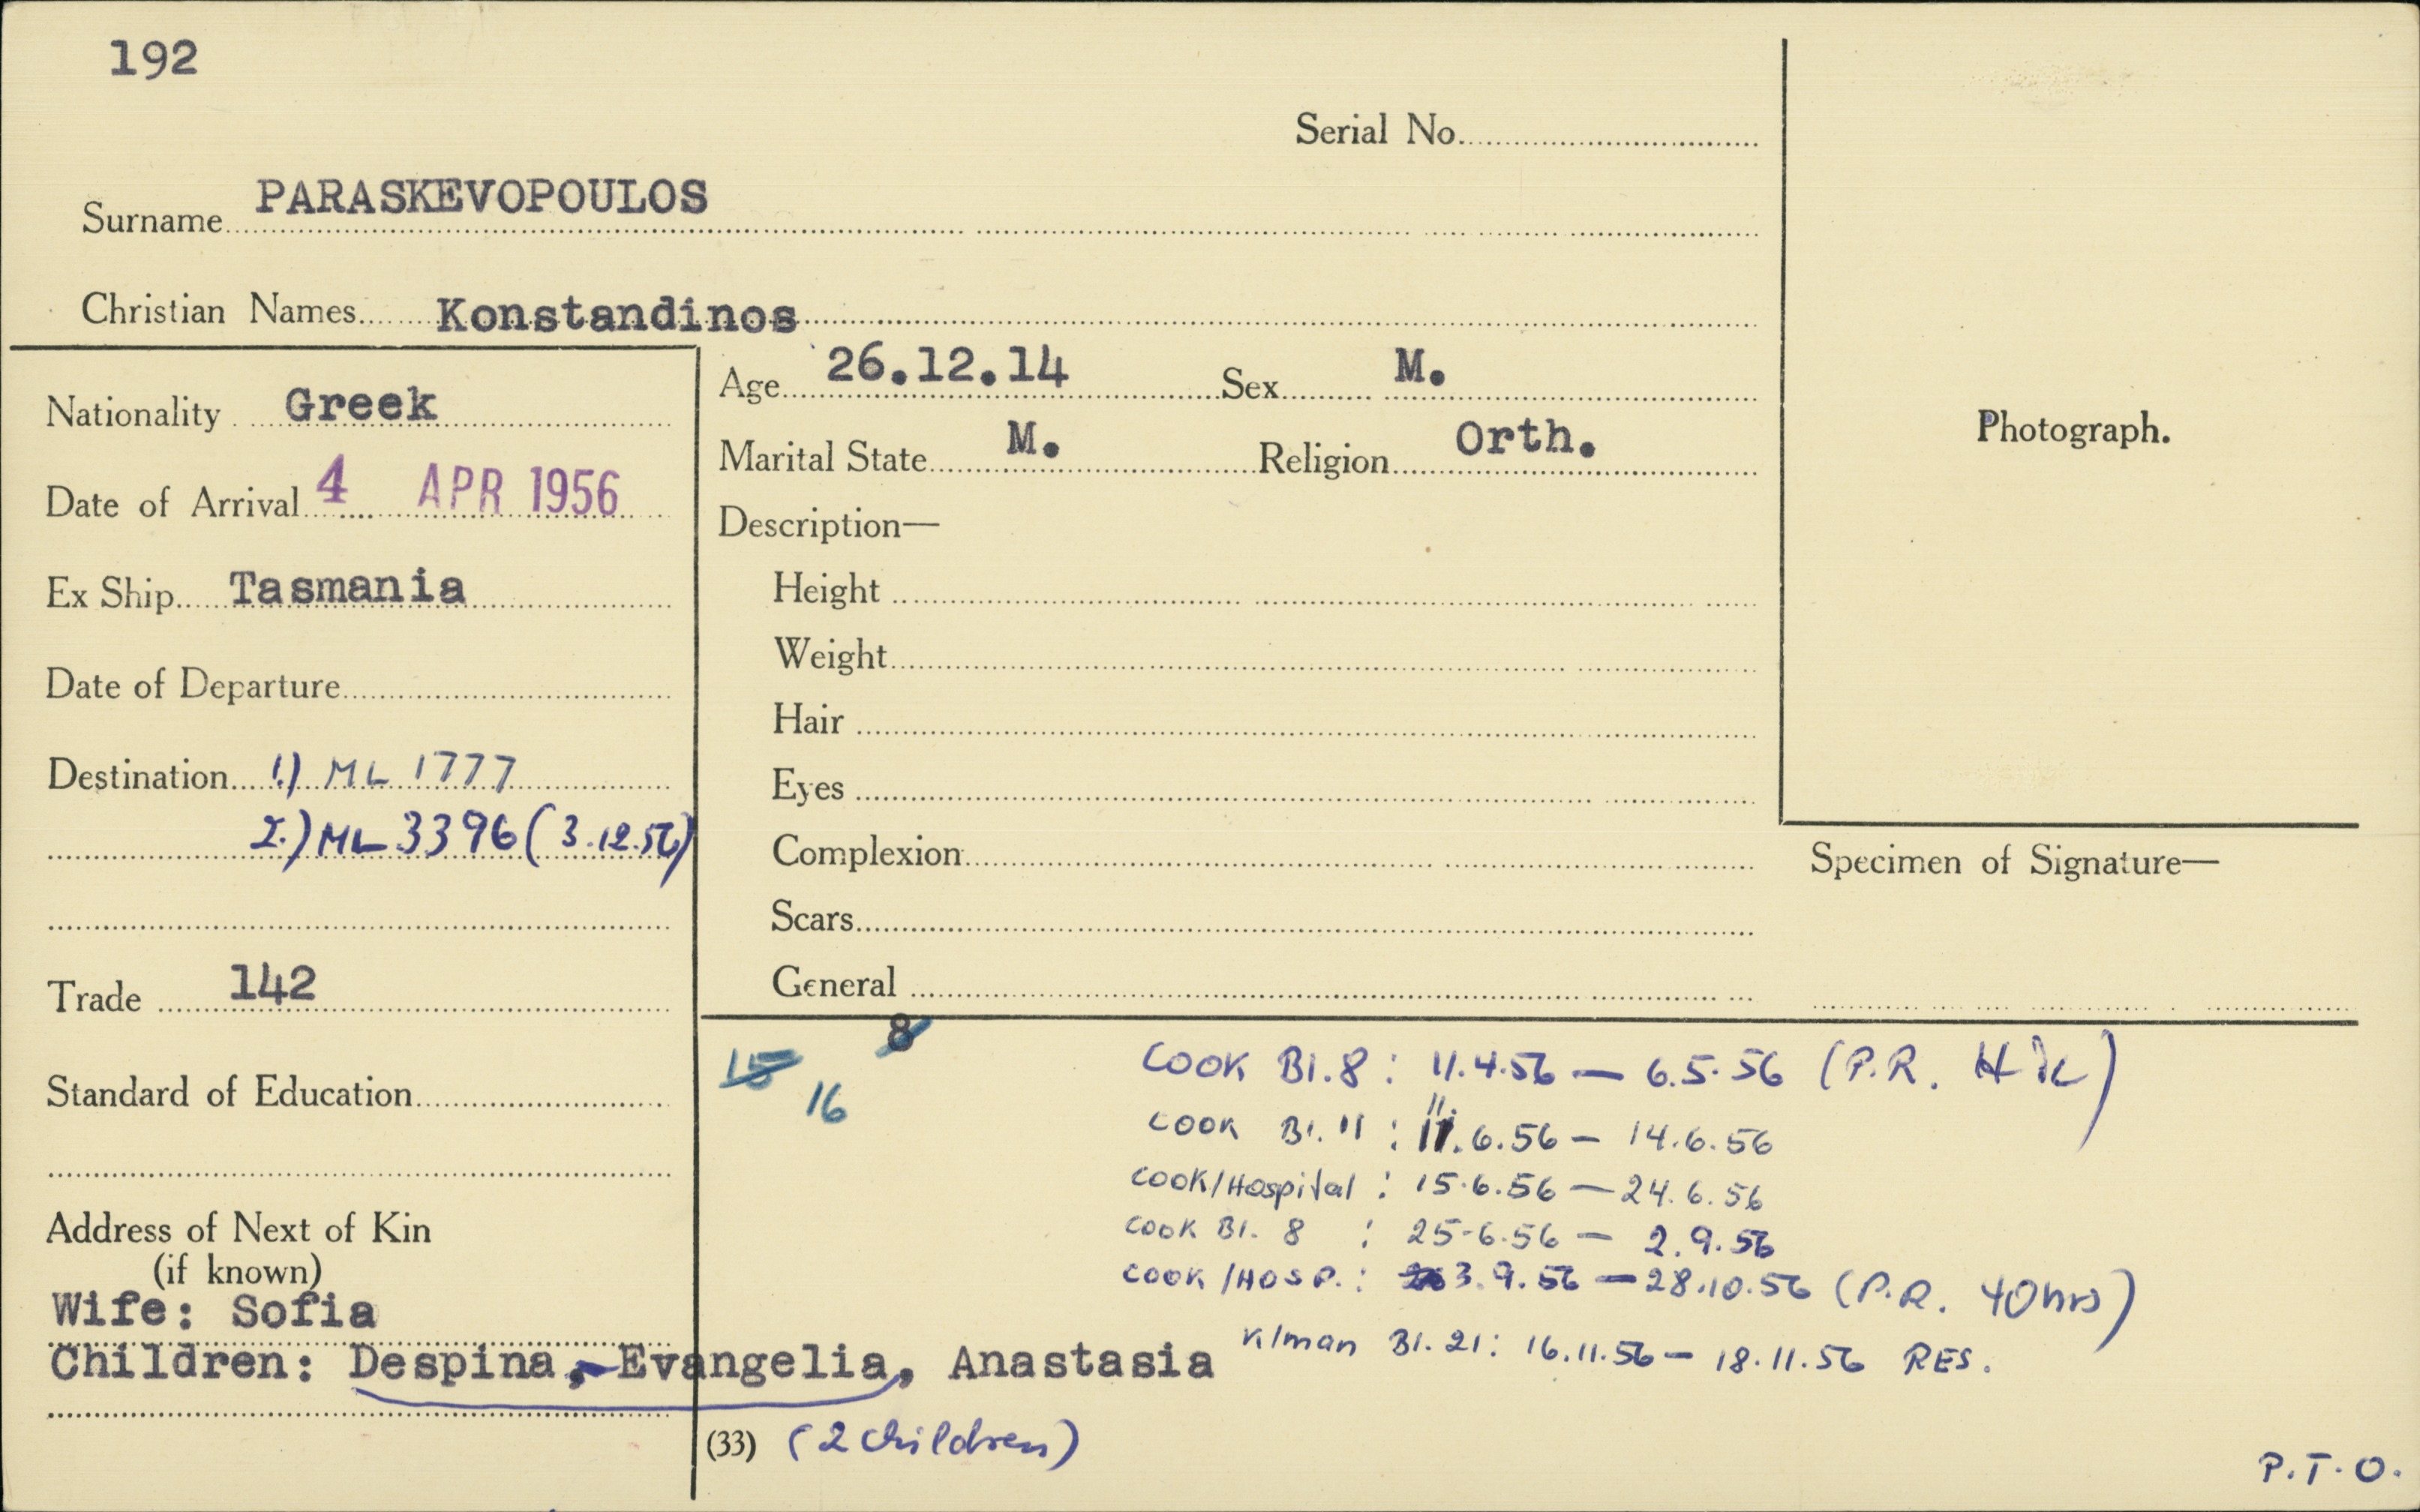 192
Serial No.
Surname PARASKEVOPOULOS
Christian Names Konstandinos
Nationality Greek
Date of Arrival 4 APR 1956
Ex Ship Tasmania
Date of Departure
Destination 1.) ML 1777
2.) ML 3396 (3.12.56)
Trade 142
Standard of Education
Address of Next of Kin
(if known)
Wife: Sofia
Children: Despina, Evangelia, Anastasia
Age 26.12.14 Sex M.
Marital State M. Religion Orth.
Description—
Height
Weight
Hair
Eyes
Complexion
Scars
General
Photograph.
Specimen of Signature—
8
15
16
COOK Bl. 8: 11.4.56 — 6.5.56 (P.R.
COOK Bl. 11: 11.6.56 — 14.6.56
COOK/Hospital: 15.6.56 — 24.6.56
COOK Bl. 8 : 25-6.56 — 2.9.56
COOK/HOSP.: 3.9.56 — 28.10.56 (P.R. 40 hrs)
K/man Bl. 21: 16.11.56 — 18.11.56 RES.
(33) (2 children)
P.T.O.